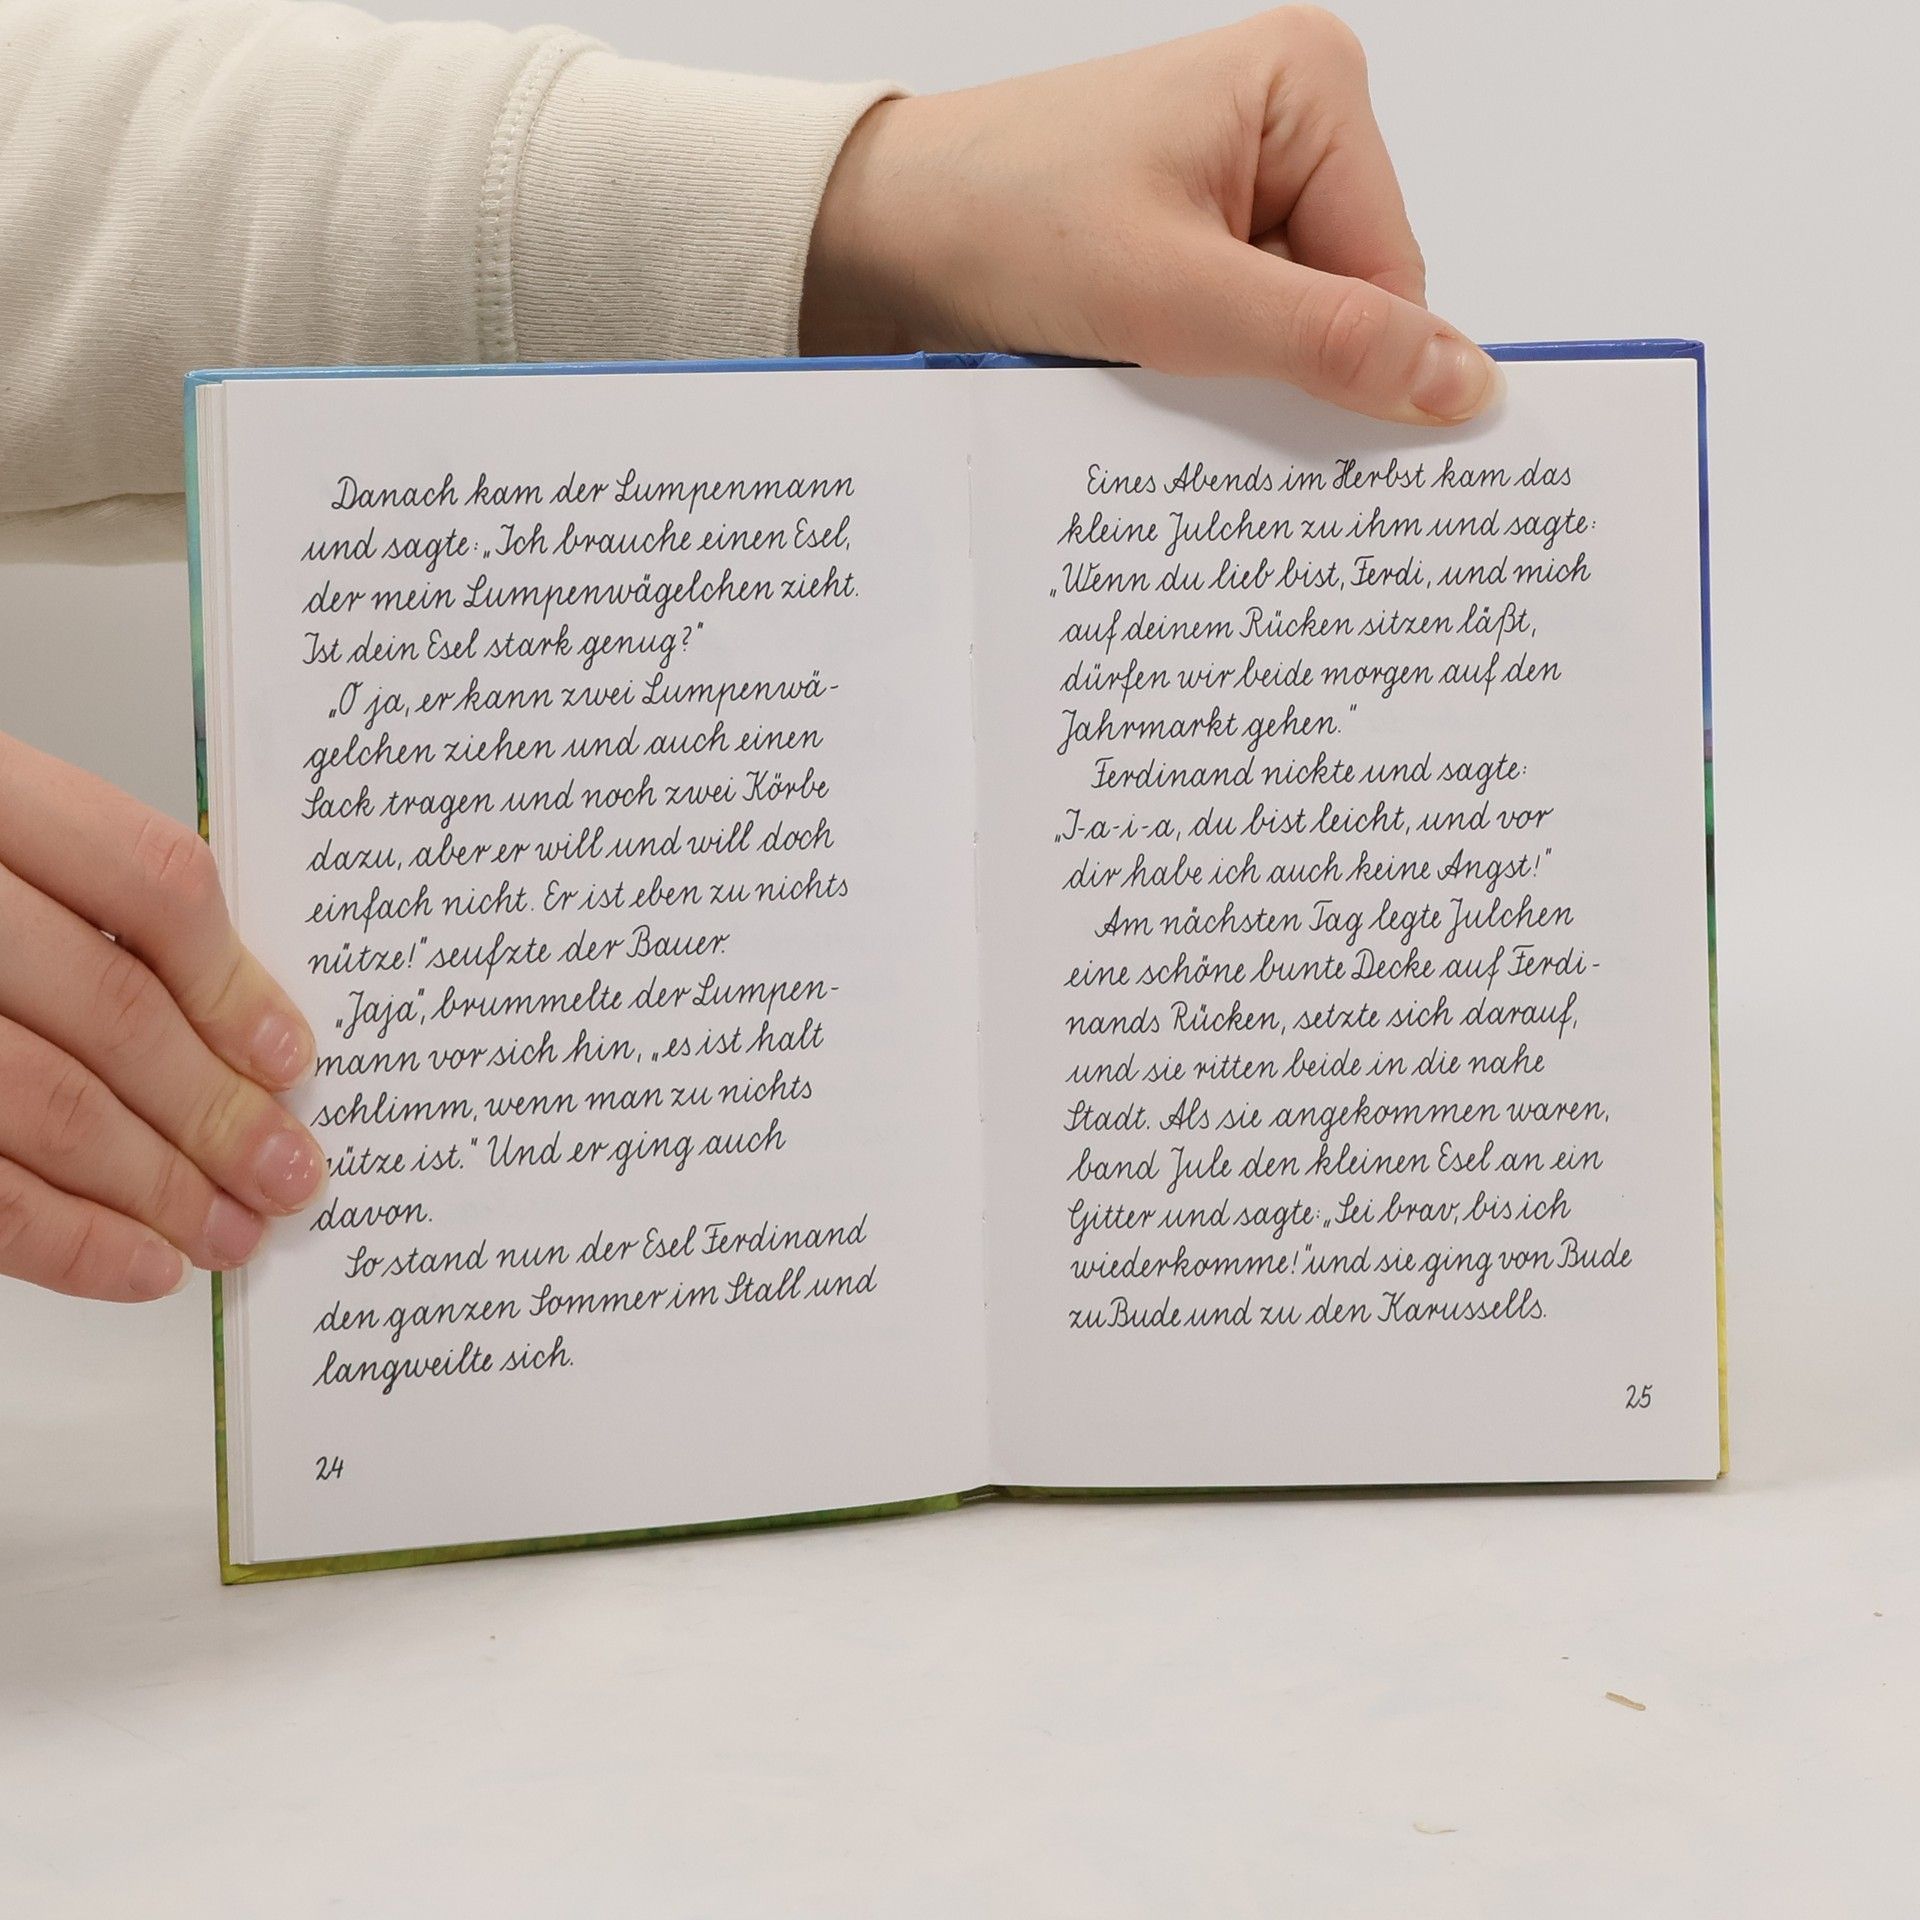 Danach kam der Lumpenmann
und sagte: „Ich brauche einen Esel,
der mein Lumpenwägelchen zieht.
Ist dein Esel stark genug?"
„O ja, er kann zwei Lumpenwä-
gelchen ziehen und auch einen
Sack tragen und noch zwei Körbe
dazu, aber er will und will doch
einfach nicht. Er ist eben zu nichts
nütze!" seufzte der Bauer.
„Jaja", brummelte der Lumpen-
mann vor sich hin, „es ist halt
schlimm, wenn man zu nichts
nütze ist." Und er ging auch
davon.
So stand nun der Esel Ferdinand
den ganzen Sommer im Stall und
langweilte sich.
24
Eines Abends im Herbst kam das
kleine Julchen zu ihm und sagte:
„Wenn du lieb bist, Ferdi, und mich
auf deinem Rücken sitzen läßt,
dürfen wir beide morgen auf den
Jahrmarkt gehen."
Ferdinand nickte und sagte:
„I-a-i-a, du bist leicht, und vor
dir habe ich auch keine Angst!"
Am nächsten Tag legte Julchen
eine schöne bunte Decke auf Ferdi-
nands Rücken, setzte sich darauf,
und sie ritten beide in die nahe
Stadt. Als sie angekommen waren,
band Jule den kleinen Esel an ein
Gitter und sagte: „Sei brav, bis ich
wiederkomme!" und sie ging von Bude
zu Bude und zu den Karussells.
25